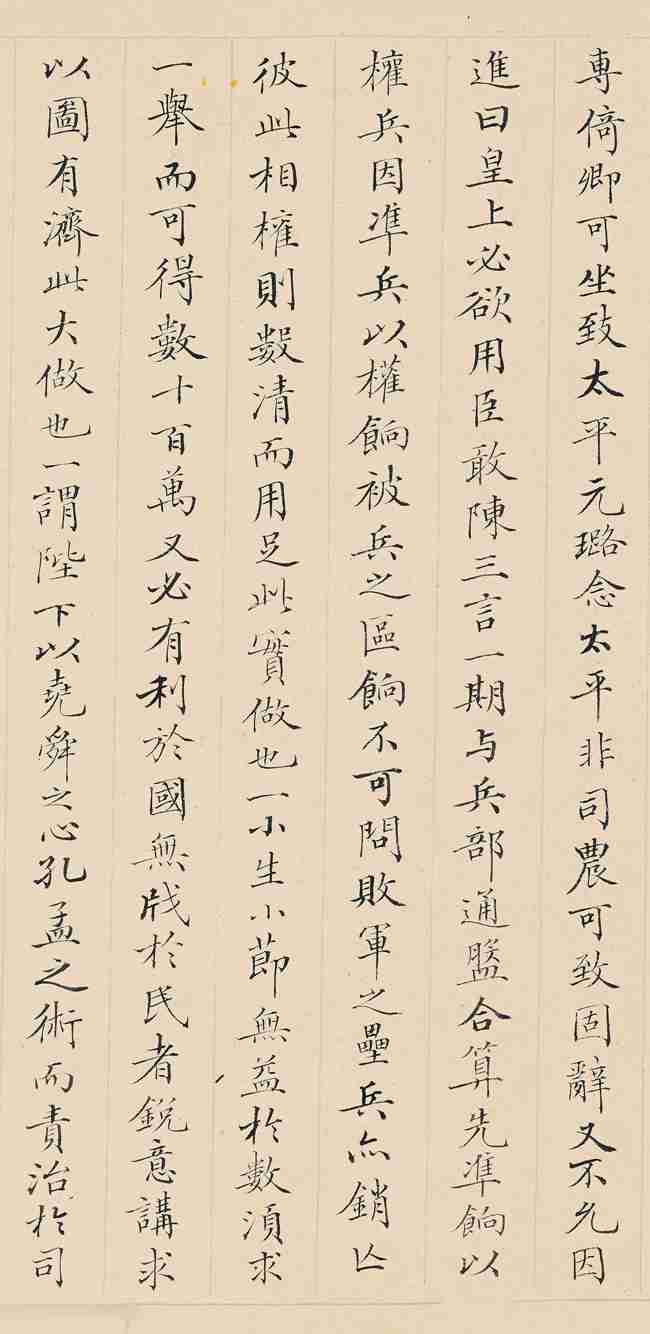 專倚卿可坐致太平元璐念太平非司農可致固辭又不允因
進曰皇上必欲用臣敢陳三言一期与兵部通盤合算先準餉以
權兵因準兵以權餉被兵之區餉不可問敗軍之壘兵亦銷亾
彼此相權則數清而用足此實做也一小生小節無益於數須求
一舉而可得數十百萬又必有利於國無戕於民者銳意講求
以圖有濟此大做也一謂陛下以堯舜之心孔孟之術而責治於司